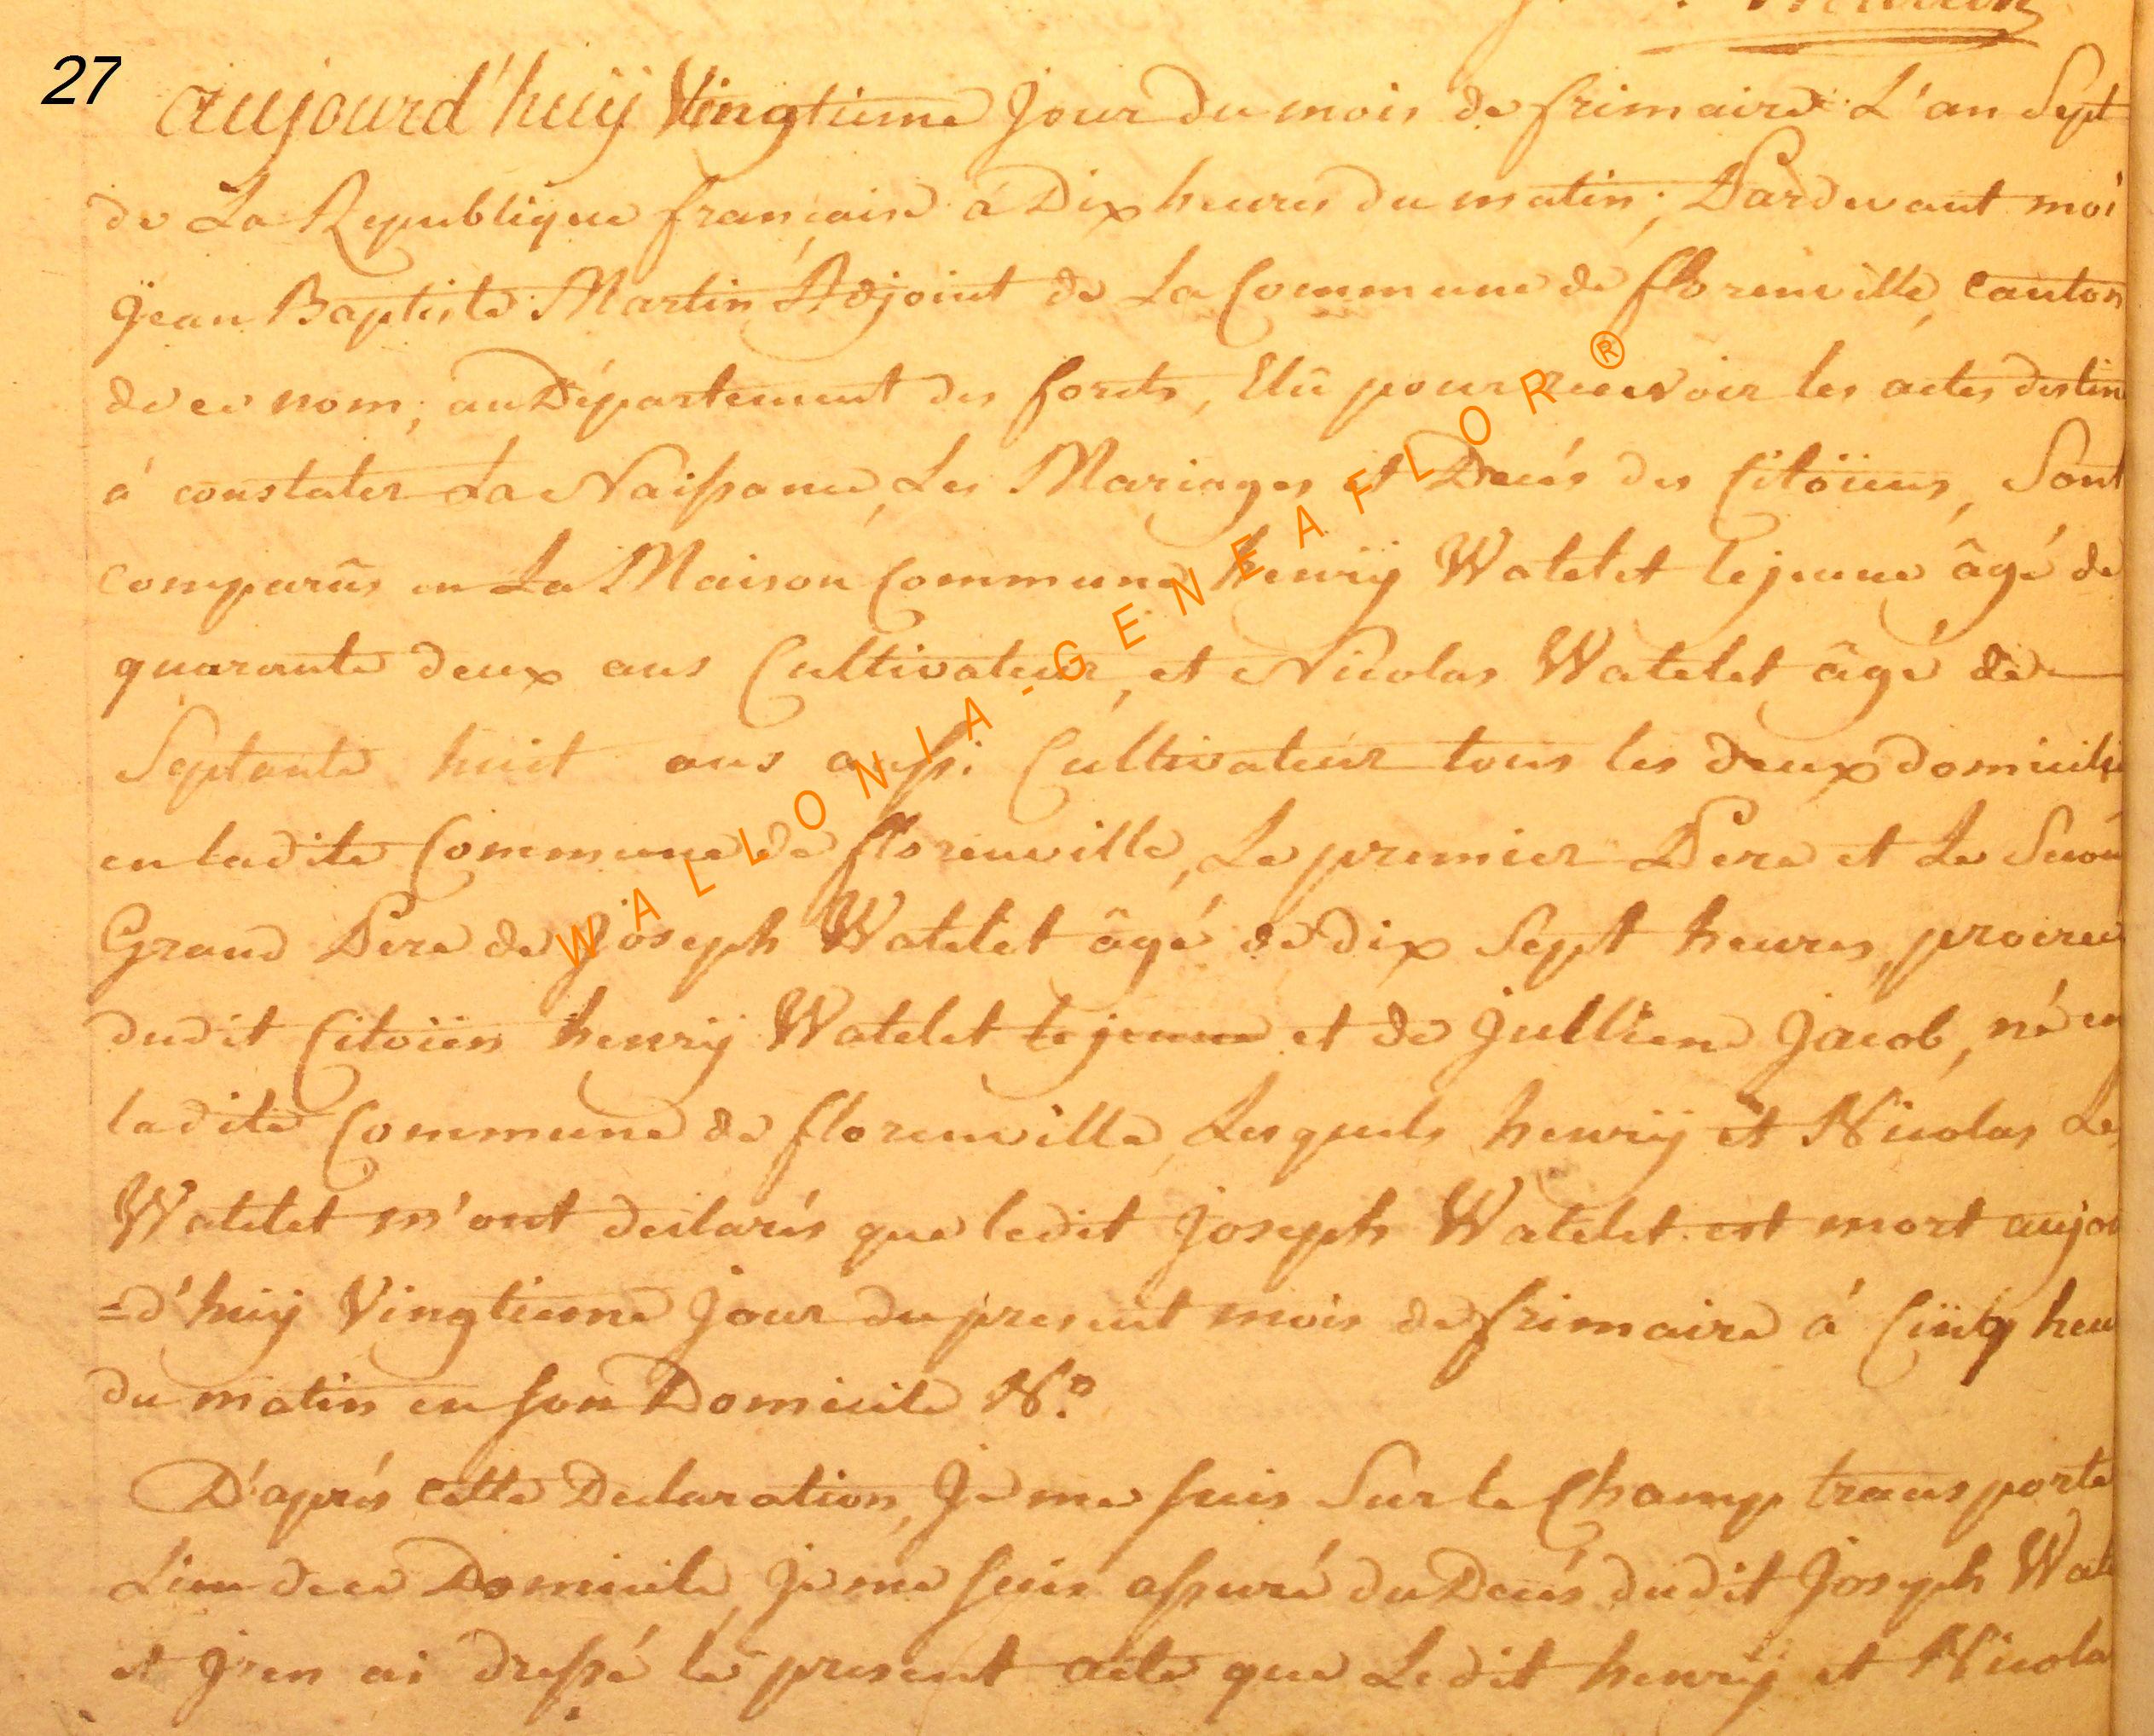 27
aujourd'huÿ Vingtieme Jour du mois de frimaire L'an Sept
de La Republique francaise á Dix heures du matin; Pardevant moi
Jean Baptiste Martin Adjoint de La Commune de florenville, canton
de ce nom, au Département des forets, Elû pour recevoir les actes destin
á constater La Naissance, Les Mariages et Decés des Citoïens, Sont
comparûs en La Maison Commune henrÿ Watelet lejeune âgé de
quarante deux ans Cultivateur, et Nicolas Watelet âgé de
Septante huit ans aussi Cultivateur tous les deux domicilié
en ladite Commune de florenville, Le premier Pere et Le Secon
Grand Pere de Joseph Watelet âgé de dix Sept heures, procreé
dudit Citoïen henrÿ Watelet lejeune et de Jullienne Jacob, né en
ladite Commune de florenville, Lesquels henrÿ et Nicolas Les
Watelet m'ont declarés que ledit Joseph Watelet est mort aujou
=d'huÿ Vingtieme Jour du present mois de frimaire á Cinq heu
du matin en son Domicile N.º
D'aprés cette Declaration, Je me suis Sur le Champ transporté
Lieu de ce Domicile, Je me suis assuré du Decés dudit Joseph Wate
et J'en ai dressé le present acte que Ledit henrÿ et Nicola
WALLONIA-GENEAFLOR®